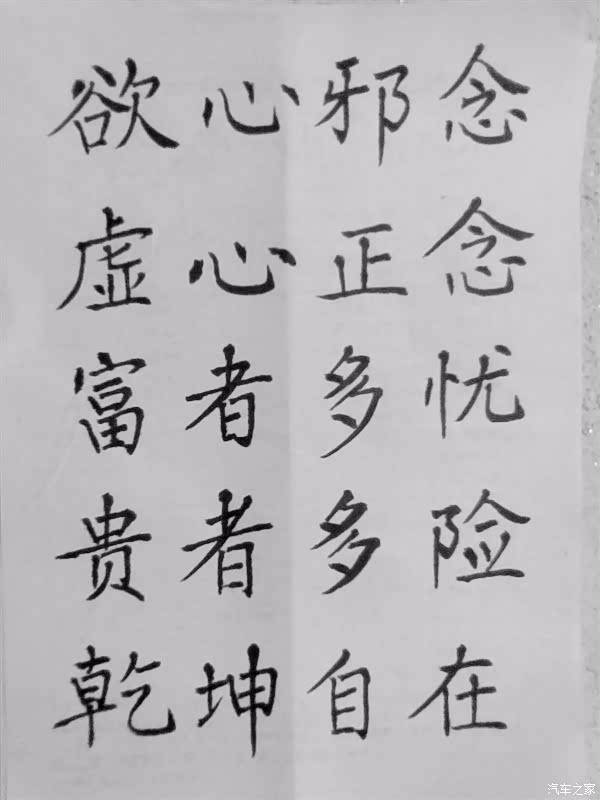 欲心邪念
虚心正念
富者多忧
贵者多险
乾坤自在
汽车之家